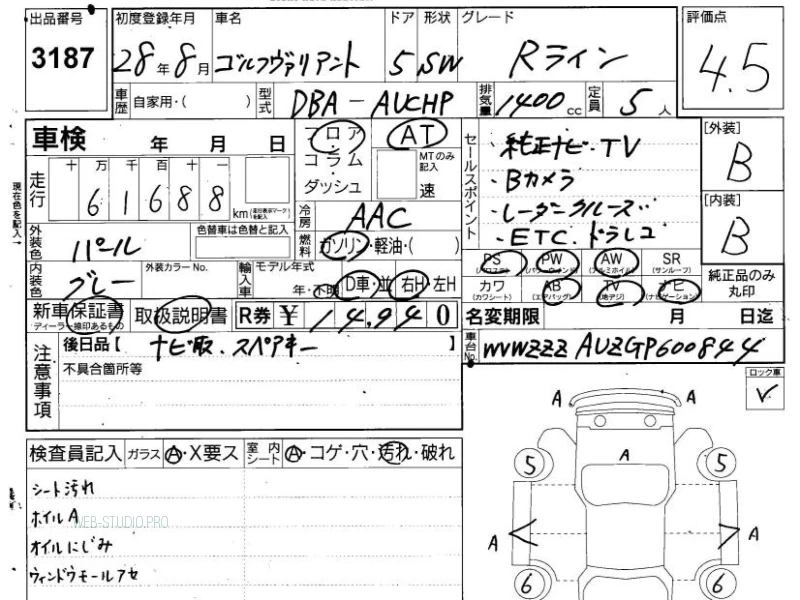 出品番号 初度登録年月 車名 ドア 形状 グレード 評価点
3187 28年8月 ゴルフヴァリアント 5 SW Rライン 4.5
車歴 自家用・( ) 型式 DBA-AUCHP 排気量 1400cc 定員 5人
車検 年 月 日 フロア AT セールスポイント ・純正ナビ・TV [外装]
コラム MTのみ記入 ・Bカメラ B
ダッシュ 速 ・レーダークルーズ
走行 十 万 千 百 十 一
6 1 6 8 8 km
現在色を記入→
冷房 AAC ・ETC.ドラレコ [内装]
外装色 パール 色替車は色替と記入 燃料 ガソリン・軽油・( ) B
PS PW AW SR
(パワステ) (パワーウインド) (アルミホイル) (サンルーフ)
内装色 グレー 外装カラーNo. 輸入車 モデル年式
年・不明 D車・並 右H・左H
カワ AB TV ナビ 純正品のみ丸印
(カワシート) (エアバッグ) (地デジ) (ナビゲーション)
新車保証書 取扱説明書 R券 ¥ 14,940 名変期限 月 日迄
ディーラー捺印あるもの
注意事項 後日品【 ナビ取.スペアキー 】 車台No. WVWZZZAUZGP600844
不具合箇所等 ロック車
✓
検査員記入 ガラス A・X要ス 室内シート A・コゲ・穴・汚れ・破れ
シート汚れ
ホイルA
WEB-STUDIO.PRO
オイルにじみ
ウィンドウモールアセ
A A
A
5 5
A A
6 6